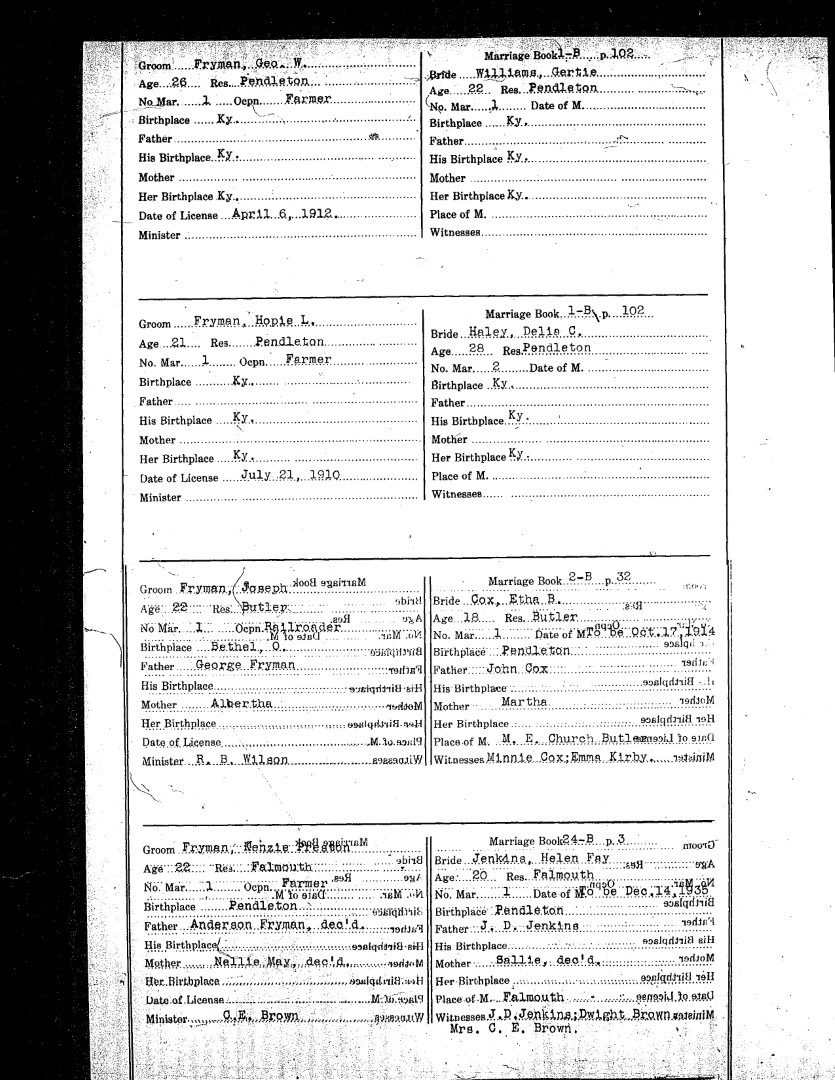 Groom Fryman, Geo. W.
Age 26 Res. Pendleton
No Mar. 1 Ocpn. Farmer
Birthplace Ky.
Father
His Birthplace Ky.
Mother
Her Birthplace Ky.
Date of License April 6, 1912.
Minister
Marriage Book 1-B p. 102
Bride Williams, Gertie
Age 22 Res. Pendleton
No. Mar. 1 Date of M.
Birthplace Ky.
Father
His Birthplace Ky.
Mother
Her Birthplace Ky.
Place of M.
Witnesses
Groom Fryman, Hopie L.
Age 21 Res. Pendleton
No. Mar. 1 Ocpn. Farmer
Birthplace Ky.
Father
His Birthplace Ky.
Mother
Her Birthplace Ky.
Date of License July 21, 1910
Minister
Marriage Book 1-B p. 102
Bride Haley, Delia C.
Age 28 Res. Pendleton
No. Mar. 2 Date of M.
Birthplace Ky.
Father
His Birthplace Ky.
Mother
Her Birthplace Ky.
Place of M.
Witnesses
Groom Fryman, Joseph
Age 22 Res. Butler
No Mar. 1 Ocpn. Railroader
Birthplace Bethel, O.
Father George Fryman
His Birthplace
Mother Albertha
Her Birthplace
Date of License
Minister R. B. Wilson
Marriage Book 2-B p. 32
Bride Cox, Etha B.
Age 18 Res. Butler
No. Mar. 1 Date of M To be Oct.17,1914
Birthplace Pendleton
Father John Cox
His Birthplace
Mother Martha
Her Birthplace
Place of M. M. E. Church Butler
Witnesses Minnie Cox;Emma Kirby.
Groom Fryman,
Age 22 Res. Falmouth
No. Mar. 1 Ocpn. Farmer
Birthplace Pendleton
Father Anderson Fryman, dec'd.
His Birthplace
Mother Nellie May, dec'd.
Her Birthplace
Date of License
Minister C.E. Brown
Marriage Book 24-B p. 3
Bride Jenkins, Helen Fay
Age 20 Res. Falmouth
No. Mar. 1 Date of M To be Dec.14,1935
Birthplace Pendleton
Father J. D. Jenkins
His Birthplace
Mother Sallie, dec'd.
Her Birthplace
Place of M. Falmouth
Witnesses J.D.Jenkins;Dwight Brown
Mrs. C. E. Brown.